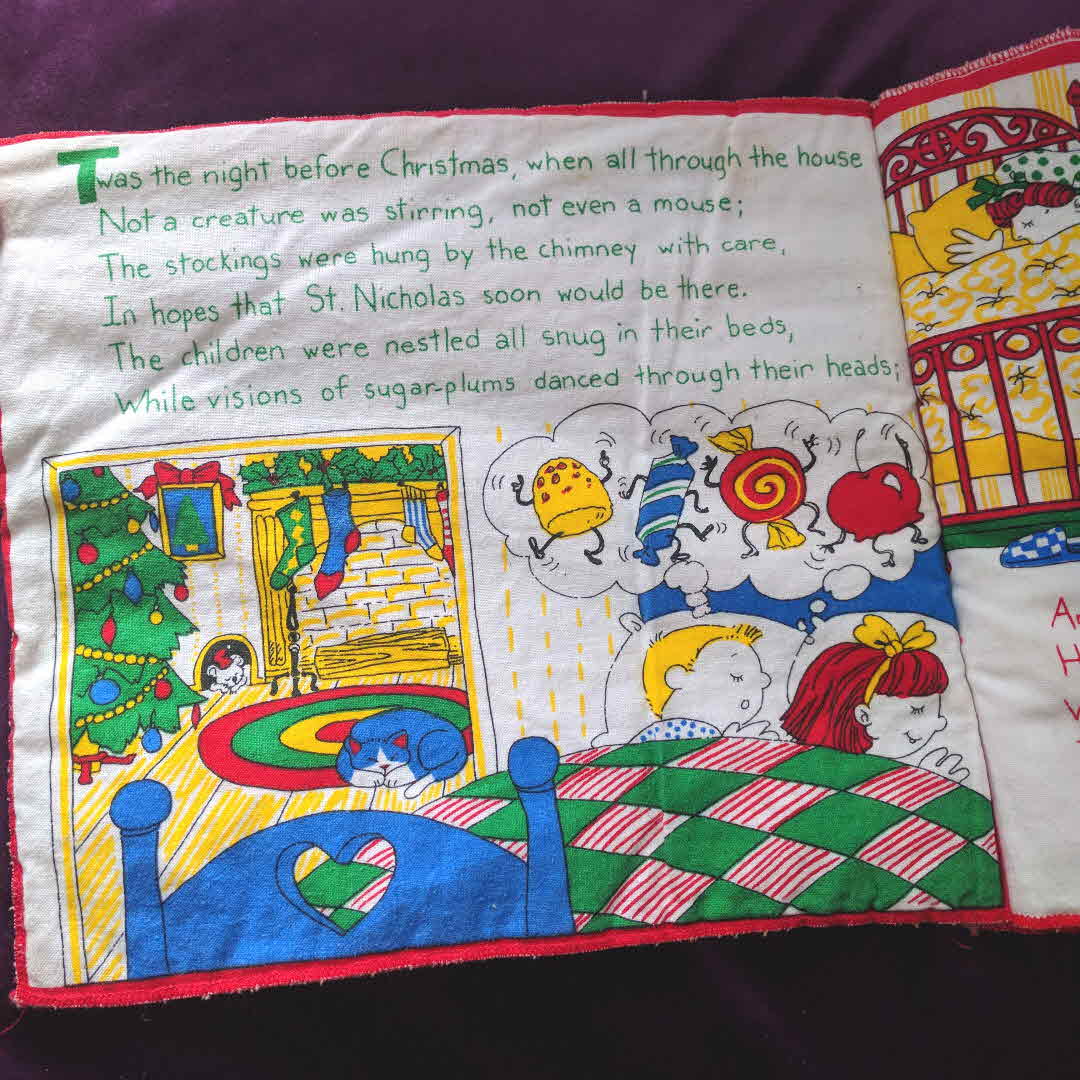 Twas the night before Christmas, when all through the house
Not a creature was stirring, not even a mouse;
The stockings were hung by the chimney with care,
In hopes that St. Nicholas soon would be there.
The children were nestled all snug in their beds,
While visions of sugar-plums danced through their heads;